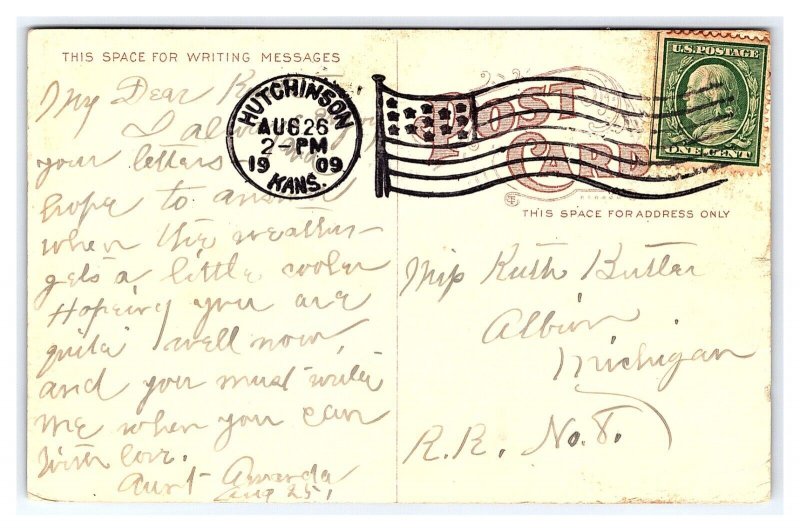 THIS SPACE FOR WRITING MESSAGES
My Dear
I
your letters
hope to
when the weather
gets a little cooler
Hopeing you are
quite well now,
and you must write
me when you can
With love.
Aunt Amanda
Aug 25,
HUTCHINSON
AUG 26
2-PM
1909
KANS.
POST
CARD
THIS SPACE FOR ADDRESS ONLY
U.S. POSTAGE
ONE CENT
Miss Ruth Butler
Albion
Michigan
R.R. No. 8.